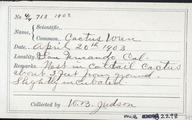 No. 4/ 713 1903
Name, Scientific,
Common, Cactus Wren
Date, April 20th 1903
Locality, San Fernando Cal.
Remarks, Nest in Cattail Cactus
about 5 feet from ground.
Slightly incubated
Collected by W.B. Judson
22298